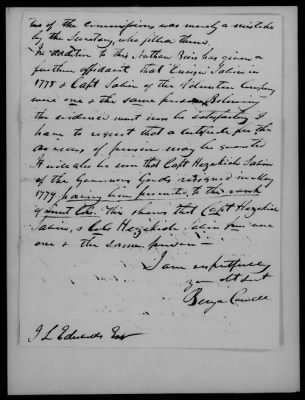 two of the commissions was merely a mistake
by the Secretary, who filled them.
In addition to this Nathan Rice has given a
further affidavit that Ensign Sabin in
1778 & Capt Sabin of the Volunteer Company
were one & the same person. Believing
the evidence must now be satisfactory I
have to request that a certificate for the
arrears of pension may be granted
It will also be seen that Capt Hezekiah Sabin
of the Governors Guards resigned in May
1779 having been promoted to the rank
of Lieut Col. This shows that Capt Hezekiah
Sabin, & Col. Hezekiah Sabin were one
one & the same person —
I am respectfully
your obt Svt
Benja Cowell
J L Edwards Esq